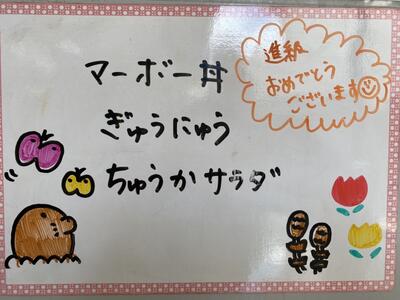 進級
おめでとう
ございます
マーボー丼
ぎゅうにゅう
ちゅうかサラダ